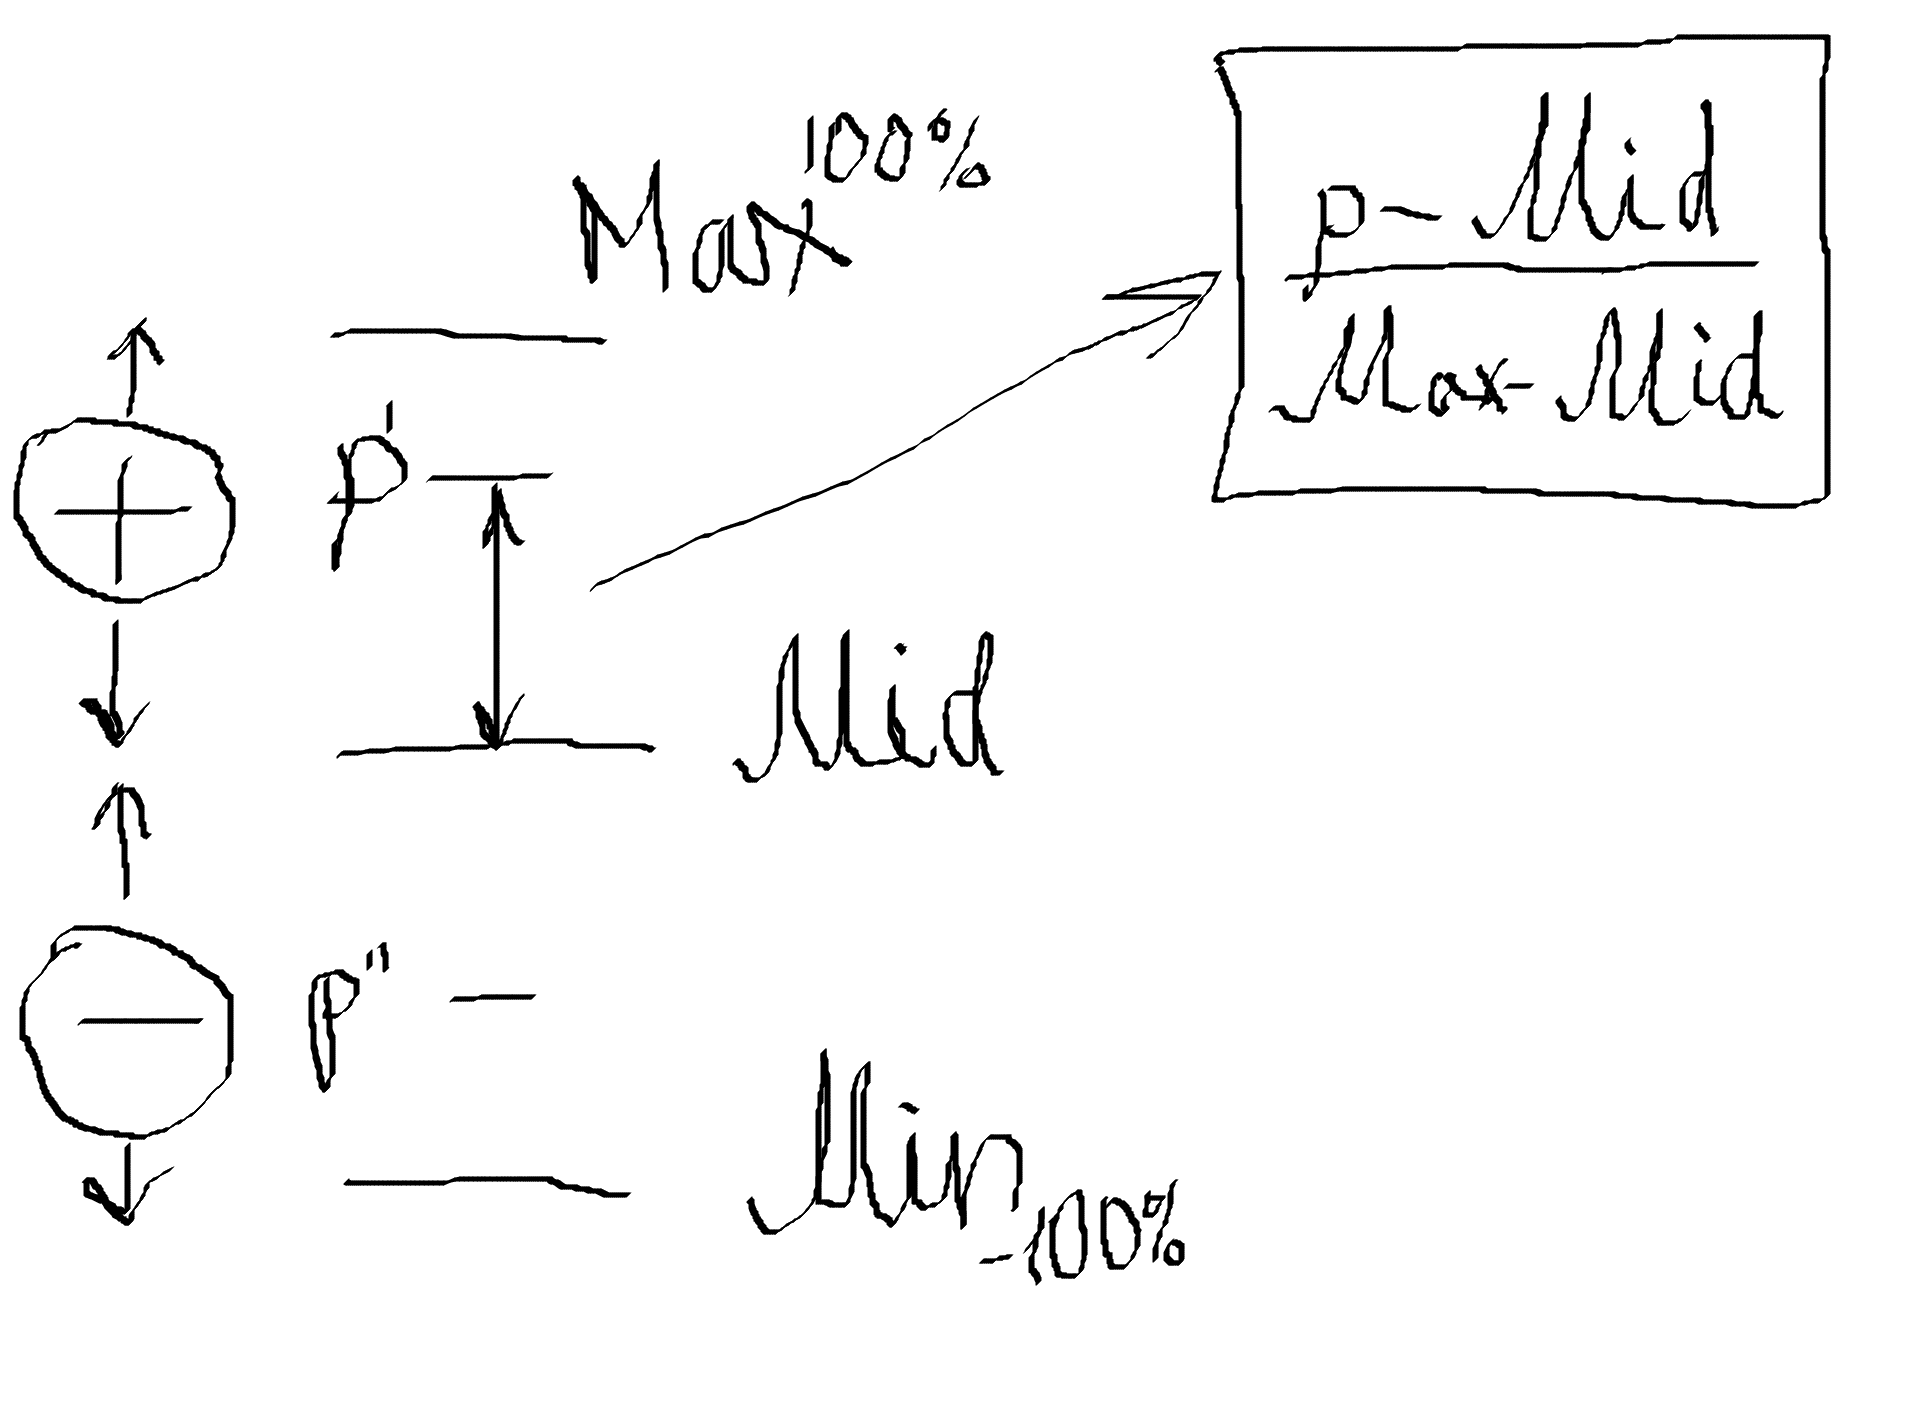 Max 100%
p - Mid
Max - Mid
+
p'
Mid
-
p"
Min -100%